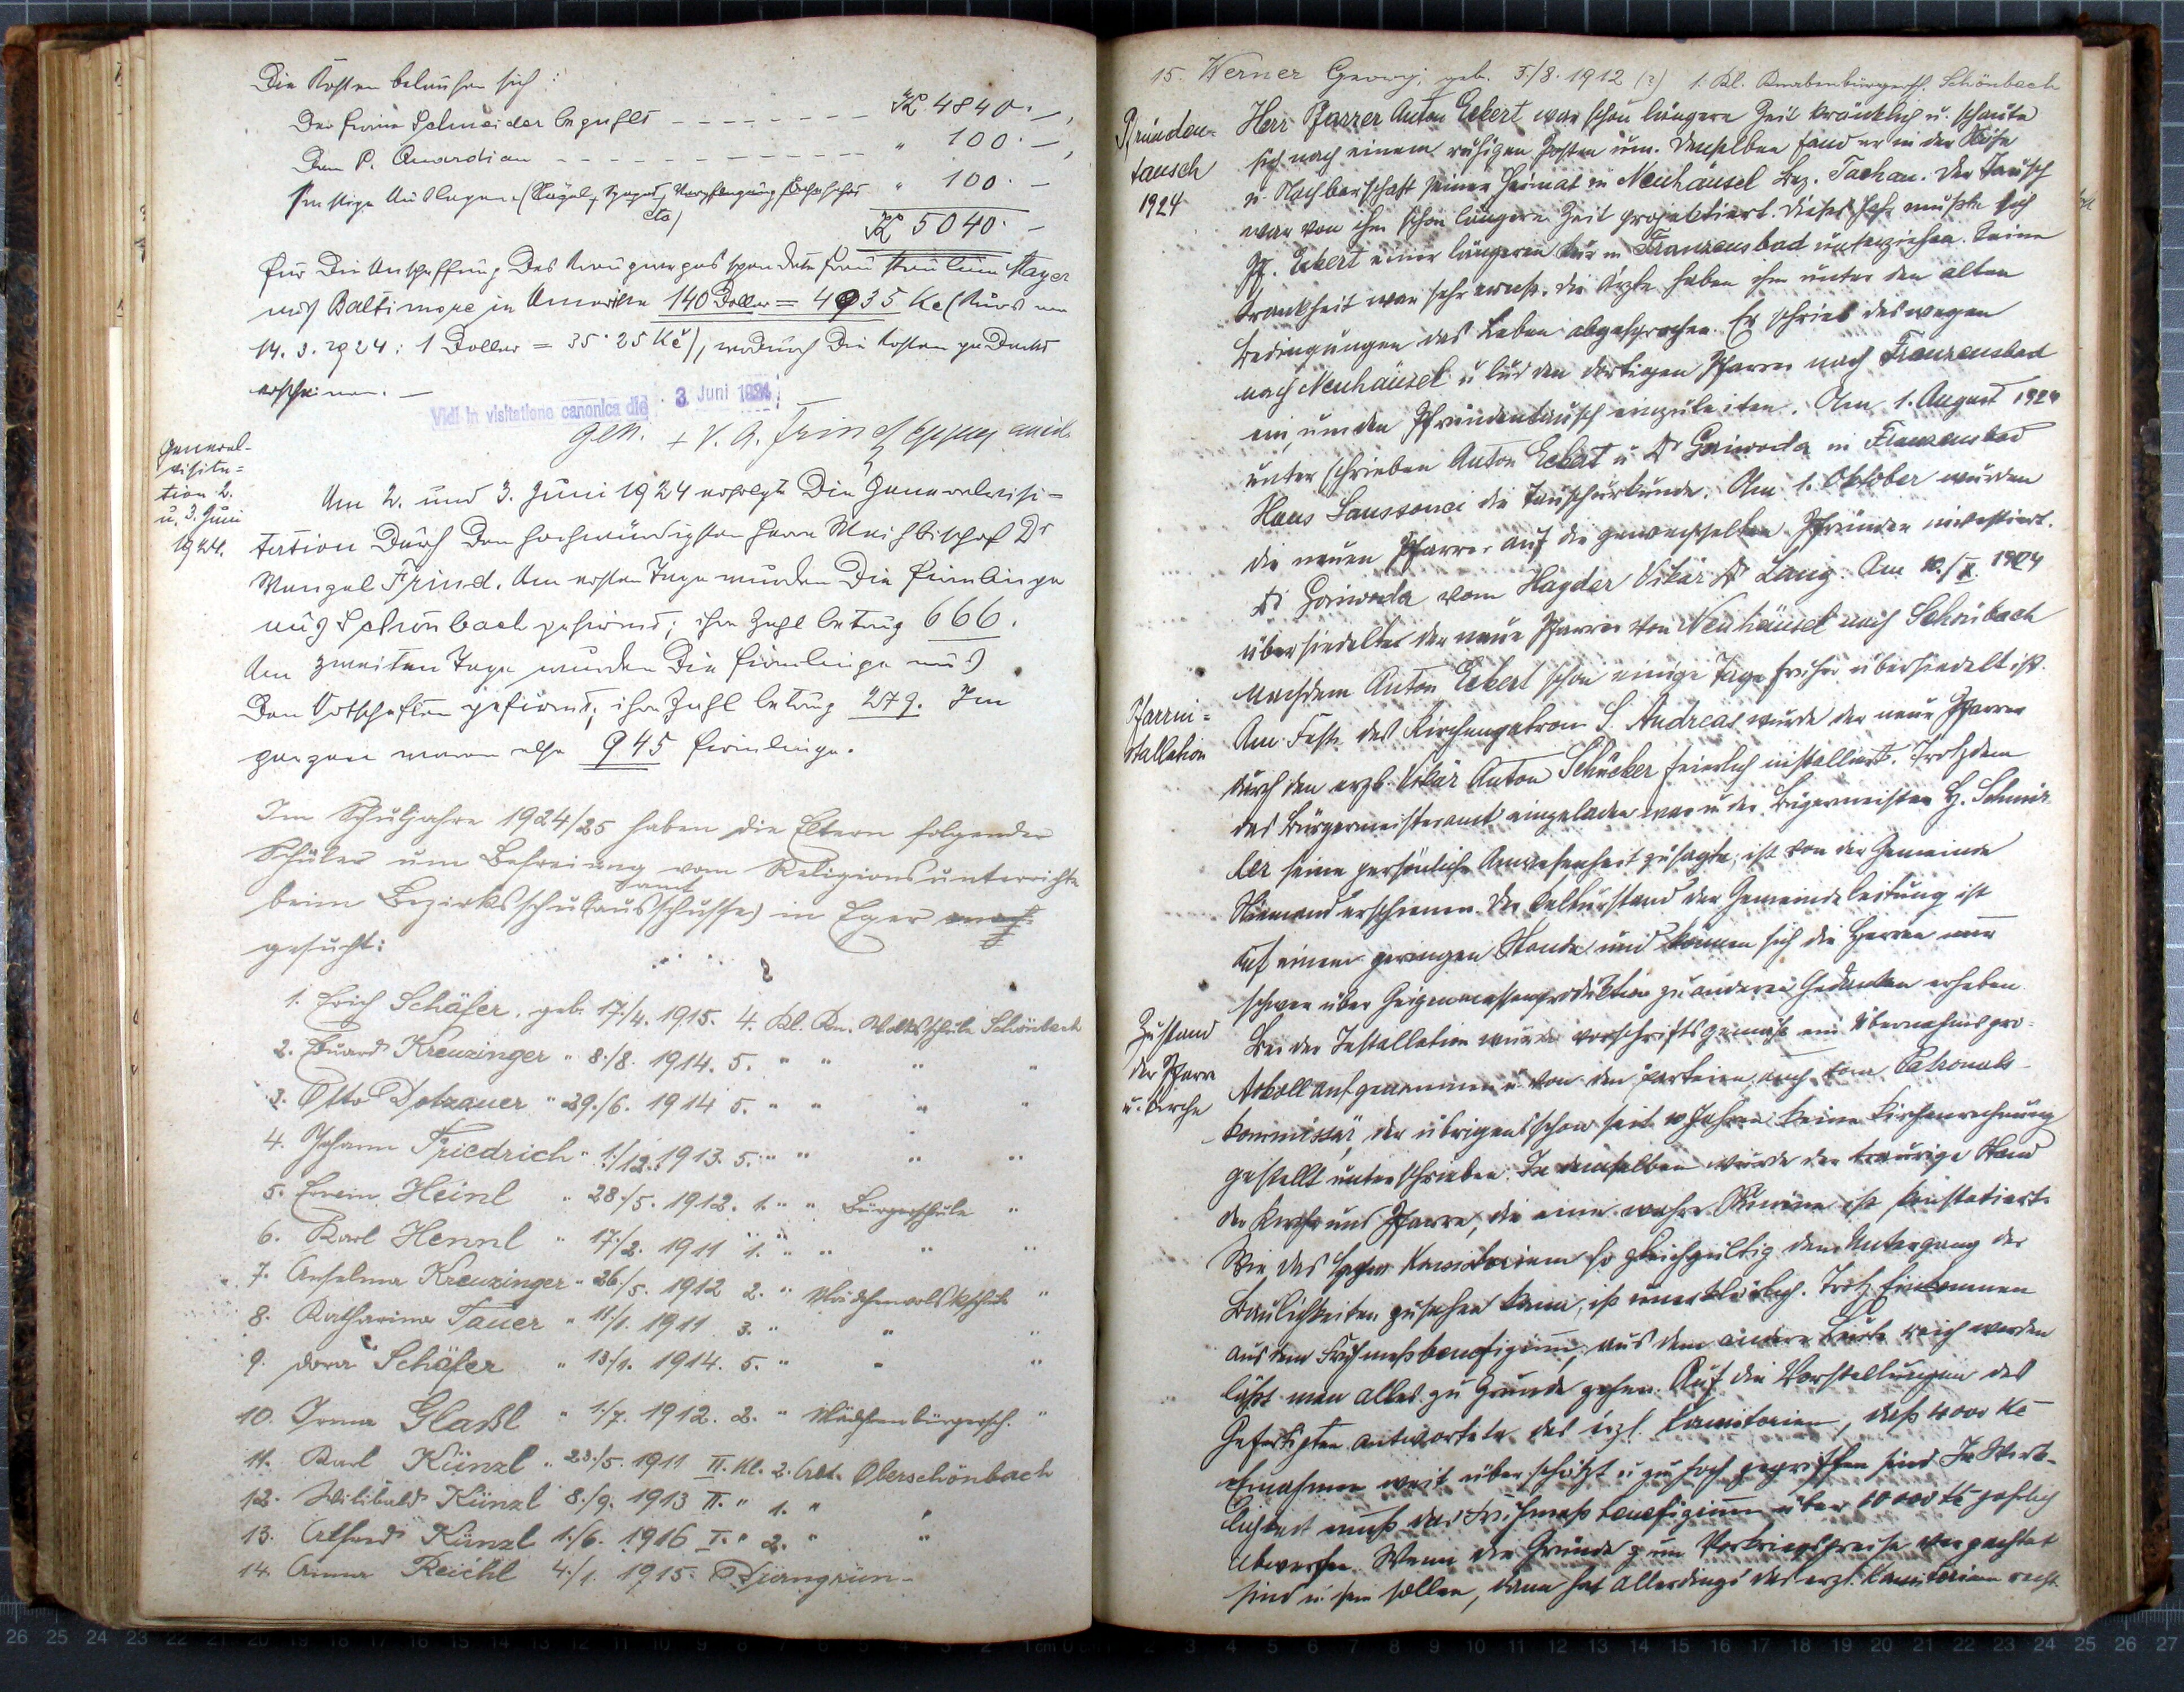 Die Kosten belaufen sich:
Der Firma Schneider bezahlt - - - - - - - - K 4840·—,
Dem P. Quardian - - - - - - - - - - - - " 100·—,
Sonstige Auslagen (Nägel, Spagat, Verpflegung
etc) " 100·—
K 5040·—
Für die Anschaffung des Kreuzweges spendete Frau Mayer
aus Baltimore in Amerika 140 Dollar = 4935 Kč (Kurs vom
14. 3. 1924: 1 Dollar = 35·25 Kč), wodurch die Kosten gedeckt
erscheinen. —
Vidi in visitatione canonica die 3. Juni 1924
Gen.
General-
visita=
tion 2.
u. 3. Juni
1924.
Am 2. und 3. Juni 1924 erfolgte die Generalvisi=
tation durch den hochwürdigsten Herrn Weihbischof Dr
Wenzel Frind. Am ersten Tage wurden die Firmlinge
aus Schönbach gefirmt; ihre Zahl betrug 666.
Am zweiten Tage wurden die Firmlinge aus
den Ortschaften gefirmt, ihre Zahl betrug 279. Im
ganzen waren also 945 Firmlinge.
Im Schuljahre 1924/25 haben die Eltern folgender
Schüler um Befreiung vom Religionsunterrichte
beim Bezirksschulausschusse) in Eger
amt
gesucht:
1. Erich Schäfer, geb. 17./4. 1915. 4. Kl. Kn. Volksschule Schönbach
2. Eduard Kreuzinger " 8./8. 1914. 5. " " " "
3. Otto Dotzauer " 29./6. 1914 5. " " " "
4. Johann Friedrich " 1./12. 1913. 5. " " " "
5. Erwin Heinl " 28./5. 1912. 1. " " Bürgerschule "
6. Karl Hennl " 17./2. 1911 1. " " " "
7. Anselma Kreuzinger " 26./5. 1912 2. " Mädchenvolksschule "
8. Katharina Tauer " 11./1. 1911 3. " " "
9. Dora Schäfer " 13./1. 1914. 5. " " "
10. Irma Glaßl " 1./7. 1912. 2. " Mädchenbürgersch. "
11. Karl Künzl " 23./5. 1911 II. Kl. 2. Abt. Oberschönbach
12. Wilibald Künzl 8./9. 1913 II. " 1. " "
13. Alfred Künzl 1./6. 1916 I. " 2. " "
14. Anna Reichl 4./1. 1915. Dürngrün -
15. Werner Georg, geb. 5./8. 1912 (?) 1. Kl. Knabenbürgersch. Schönbach
Pfründen-
tausch
1924
Herr Pfarrer Anton Eckert war schon längere Zeit kränklich u. schaute
sich nach einem ruhigen Posten um. Denselben fand er in der Nähe
u. Nachbarschaft seiner Heimat in Neuhäusel Bez. Tachau. Der Tausch
war von ihm schon längere Zeit projektiert. Dieses Jahr mußte sich
Pf. Eckert einer längeren Kur in Franzensbad unterziehen. Seine
Krankheit war sehr ernst. Die Ärzte haben ihm unter den alten
Bedingungen das Leben abgesprochen. Er schrieb deswegen
nach Neuhäusel u. lud den dortigen Pfarrer nach Franzensbad
ein, um den Pfründentausch einzuleiten. Am 1. August 1924
unterschrieben Anton Eckert u. in Franzensbad
Haus Sanssouci die Tauschurkunde. Am 1. Oktober wurden
die neuen Pfarrer auf die gewechselten Pfründen investiert.
vom Hayder Vikär Lang. Am 10./X. 1924
übersiedelte der neue Pfarrer von Neuhäusel nach Schönbach
nachdem Anton Eckert schon einige Tage früher übersiedelt ist.
Pfarrin=
stallation
Am Feste des Kirchenpatrons S. Andreas wurde der neue Pfarrer
durch den erzb. Vikär Anton Schücker feierlich installiert. Trotzdem
das Bürgermeisteramt eingeladen war u. der Bürgermeister H. Schmid-
ler seine persönliche Anwesenheit zusagte, ist von der Gemeinde
Niemand erschienen. Der Kulturstand der Gemeindeleitung ist
auf einem geringen Stande und können sich die Herren nur
schwer über Geigenmassenproduktion zu anderen Gedanken erheben.
Zustand
der Pfarre
u. Kirche
Bei der Installation wurde vorschriftsgemäß ein Übernahmspro-
tokoll aufgenommen u. von den Parteien auch vom Patronats-
kommissär, der übrigens schon seit Jahren keine Kirchenrechnung
gestellt unterschrieben. In demselben wurde der traurige Stand
der Kirche und Pfarre, die eine wahre Ruine ist konstatiert.
Wie das Konsistorium so gleichgültig dem Untergang der
Baulichkeiten zusehen kann, ist unerklärlich. Trotz Einkommen
aus dem Frühmeßbenefizium, aus dem andere Leute reich werden
läßt man alles zu Grunde gehen. Auf die Vorstellungen des
Gefertigten antwortete das erzb. Konsistorium, daß 4000 Kč
Einnahmen weit überschätzt u. zu hoch gegriffen sind. In Wirk-
lichkeit muß das Frühmeßbenefizium über 10000 Kč jährlich
abwerfen. Wenn die Gründe zum Vorkriegspreise verpachtet
sind u. sein sollen, dann hat allerdings das erzb. Konsistorium recht.